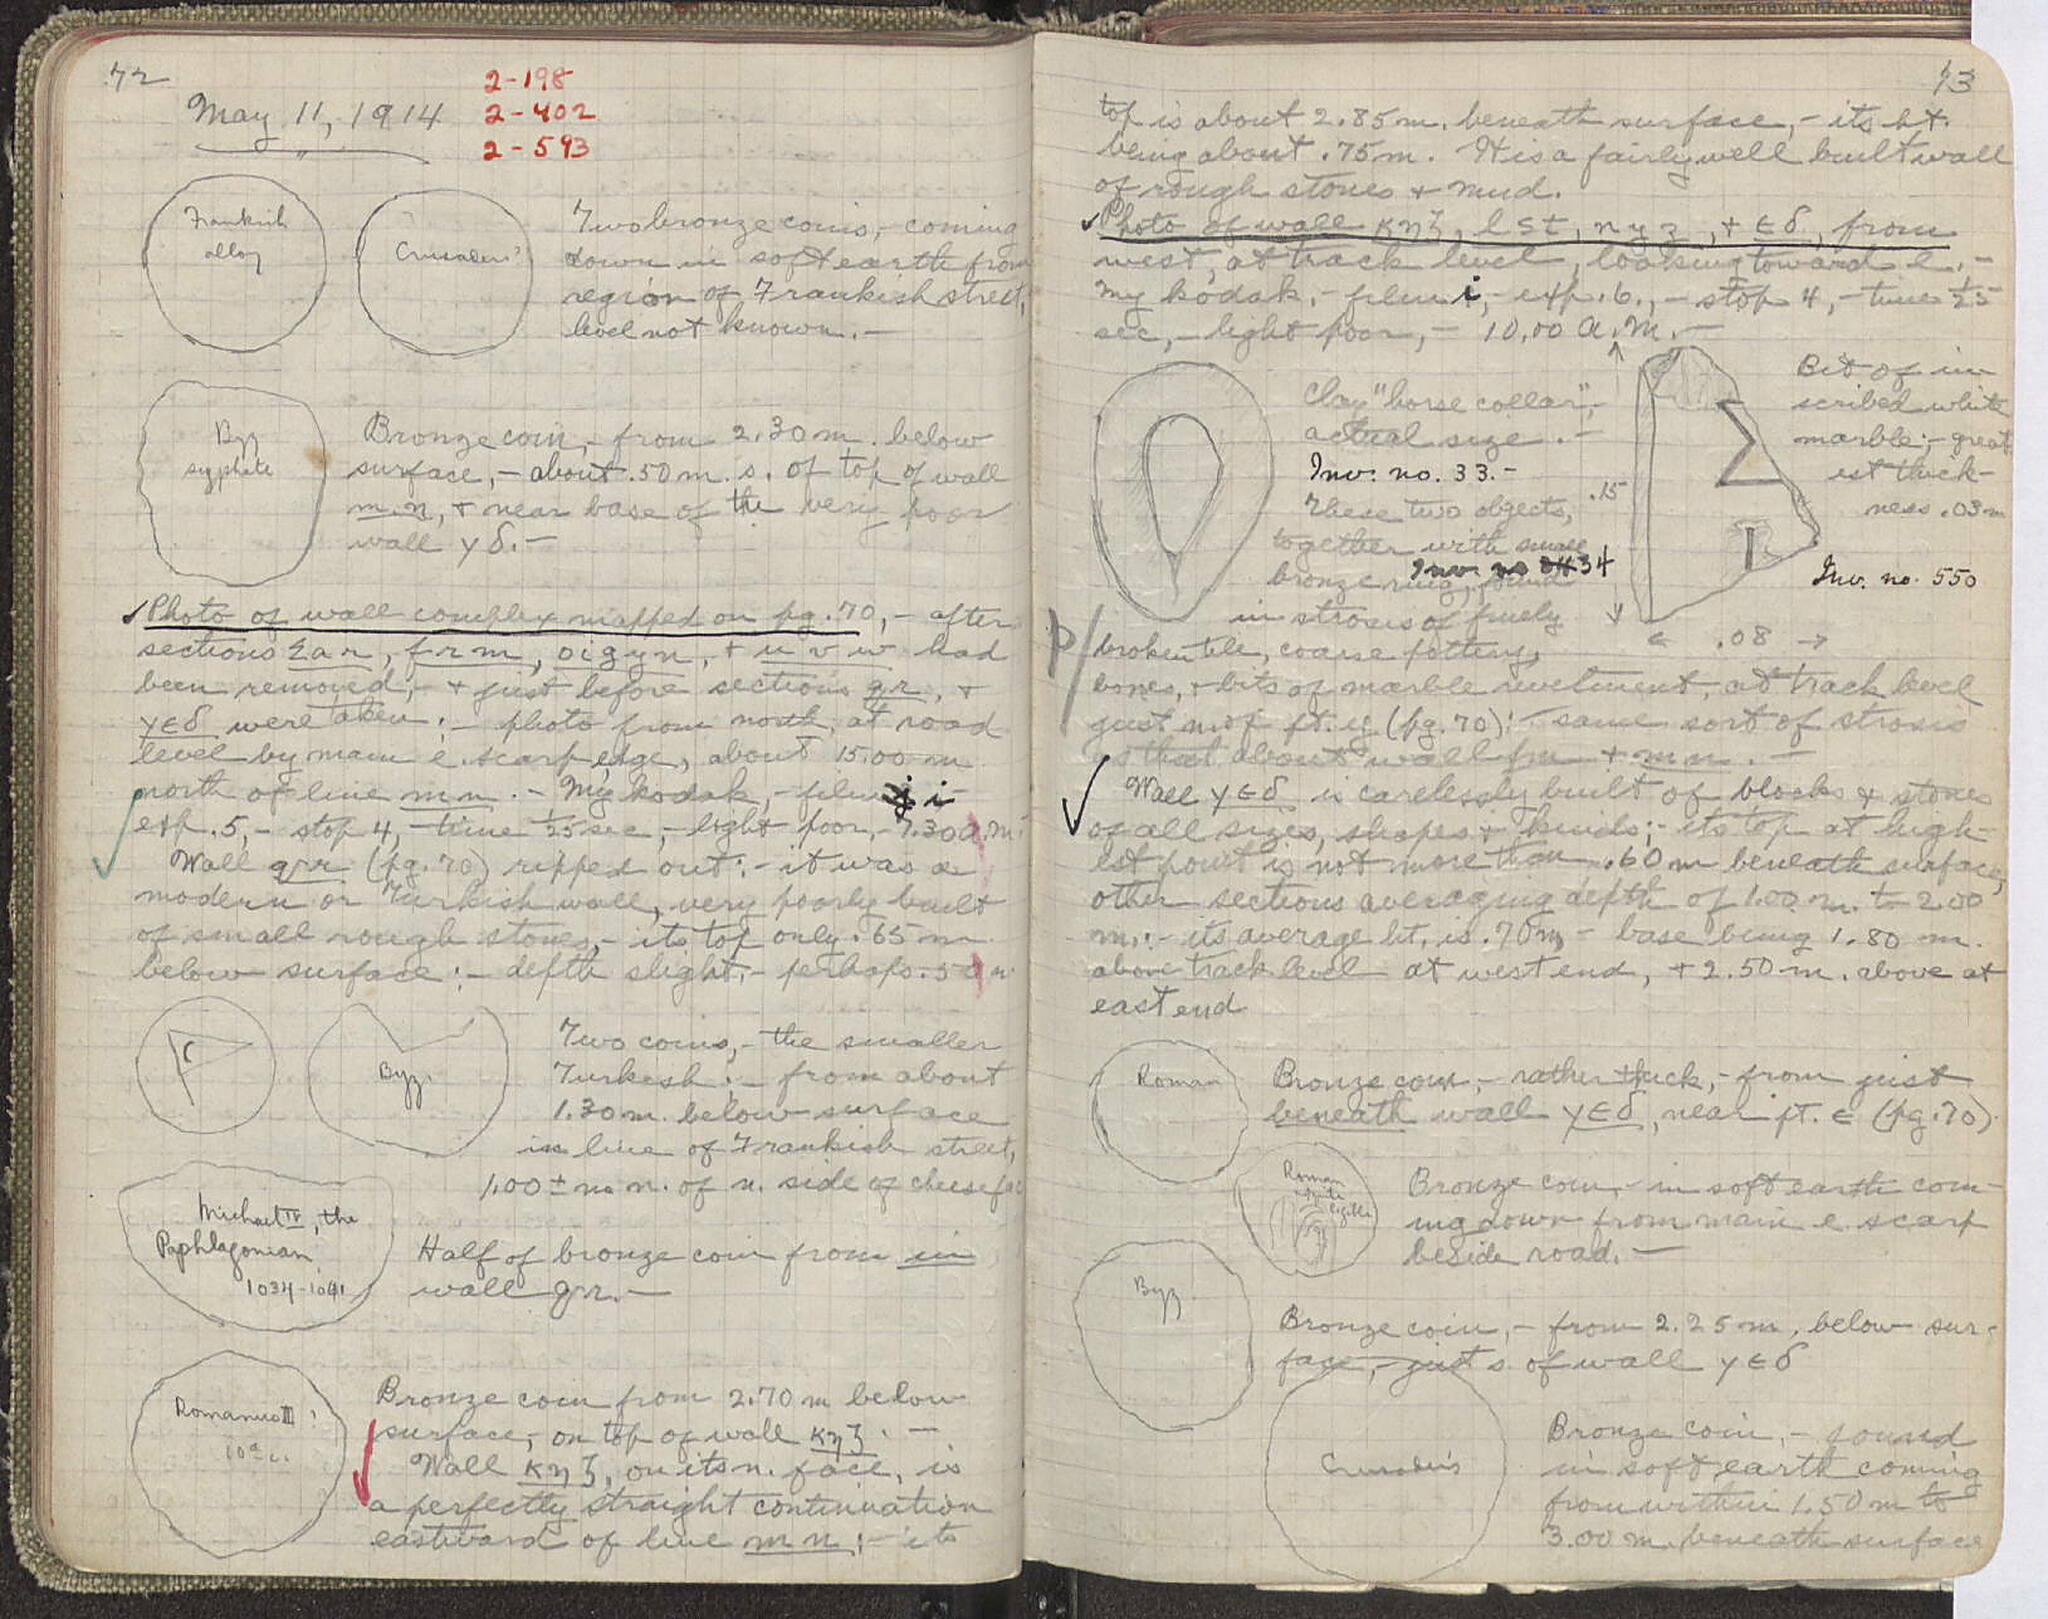 72
May 11, 1914
2-198
2-402
2-593
Frankish
alloy
Crusaders?
Two bronze coins, - coming
down in soft earth from
region of Frankish street,
level not known. -
Byz
scyphate
Bronze coin, - from 2.30 m. below
surface, - about .50 m. s. of top of wall
m.n, + near base of the very poor
wall γδ. -
Photo of wall complex mapped on pg. 70, - after
sections Σar, frm, oigyn, + uvw had
been removed, - + just before sections gr, +
γεδ were taken: - photo from north, at road
level by main e. scarp edge, about 15.00 m
north of line mn. - My kodak, - film i -
exp. 5, - stop 4, - time 1/25 sec, - light poor, - 7.30 A.M.
Wall grr (pg. 70) ripped out: - it was a
modern or Turkish wall, very poorly built
of small rough stones, - its top only .65 m
below surface: - depth slight, - perhaps .50 m.
Byz.
Two coins, - the smaller
Turkish: - from about
1.30 m. below surface
in line of Frankish street,
1.00 ± m. n. of n. side of
Michael IV, the
Paphlagonian
1034-1041
Half of bronze coin from in
wall grr. -
Romanus III?
Bronze coin from 2.70 m below
surface, - on top of wall κηζ. -
Wall κηζ, on its n. face, is
a perfectly straight continuation
eastward of line mn; - its
73
top is about 2.85 m. beneath surface, - its ht.
being about .75 m. It is a fairly well built wall
of rough stones + mud.
Photo of wall κηζ, lst, nyz, + εδ, from
west, at track level, looking toward e. -
My kodak, - film i, - exp. 6, - stop 4, - time 1/25
sec, - light poor, - 10.00 A.M. -
Clay "horse collar", -
actual size. -
Inv. no. 33. -
These two objects,
together with small
Inv. no 34
bronze ring, found
in strosis of finely
broken tile, coarse pottery,
bones, + bits of marble revetment, at track level
just n. of pt. y (pg. 70): - same sort of strosis
as that about wall fm + mn. -
.15
.08
Bit of in
scribed white
marble; - great
est thick-
ness .03 m
Σ
Inv. no. 550
Wall γεδ is carelessly built of blocks + stones
of all sizes, shapes + kinds; - its top at high-
est point is not more than .60 m beneath surface,
other sections averaging depth of 1.00 m. to 2.00
m.: - its average ht. is .70 m, - base being 1.80 m.
above track level at west end, + 2.50 m. above at
east end
Roman
Bronze coin, - rather thick, - from just
beneath wall γεδ, near pt. ε (pg. 70).
Roman
Bronze coin, - in soft earth com-
ing down from main e. scarp
beside road. -
Byz.
Bronze coin, - from 2.25 m. below sur-
face, - just s of wall γεδ
Crusaders
Bronze coin, - found
in soft earth coming
from within 1.50 m to
3.00 m. beneath surface